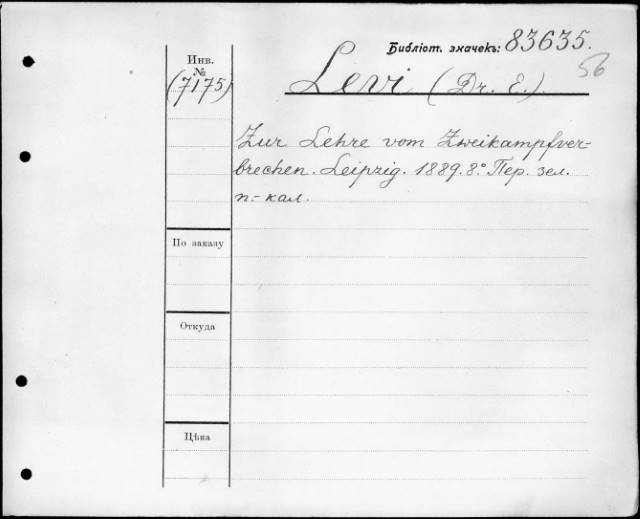 Библіот. значекъ: 83635.
56
Инв.
№
(7175)
Levi (Dr. E.).
Zur Lehre vom Zweikampfver-
brechen. Leipzig. 1889. 8°. Пер. зел.
п.-кал.
По заказу
Откуда
Цѣна